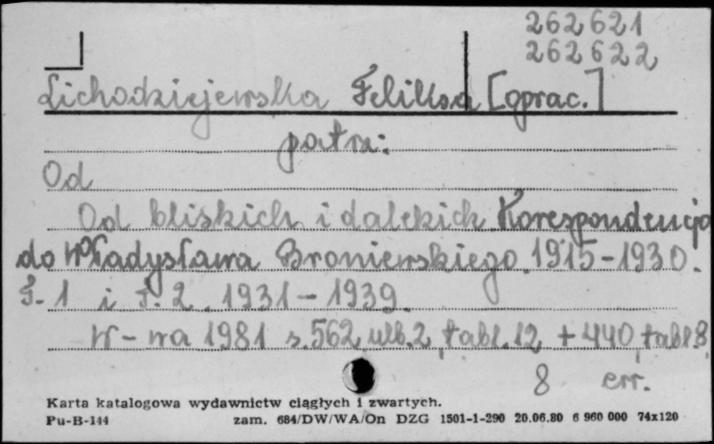 262621
262622
Lichodziejewska Feliksa [oprac.]
patrz:
Od
Od bliskich i dalekich Korespondencja
do Władysława Broniewskiego 1915-1930.
T. 1 i T. 2. 1931-1939.
W-wa 1981 s. 562, ulb. 2, tabl. 12 + 440, tabl 8
8 err.
Karta katalogowa wydawnictw ciągłych i zwartych.
Pu-B-144 zam. 684/DW/WA/On DZG 1501-1-290 20.06.80 6 960 000 74x120